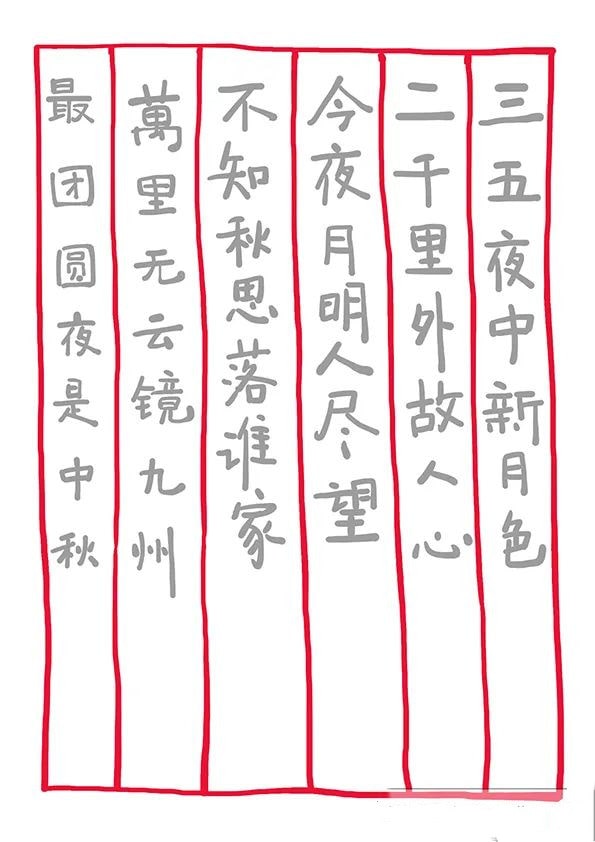 三五夜中新月色
二千里外故人心
今夜月明人尽望
不知秋思落谁家
萬里无云镜九州
最团圆夜是中秋